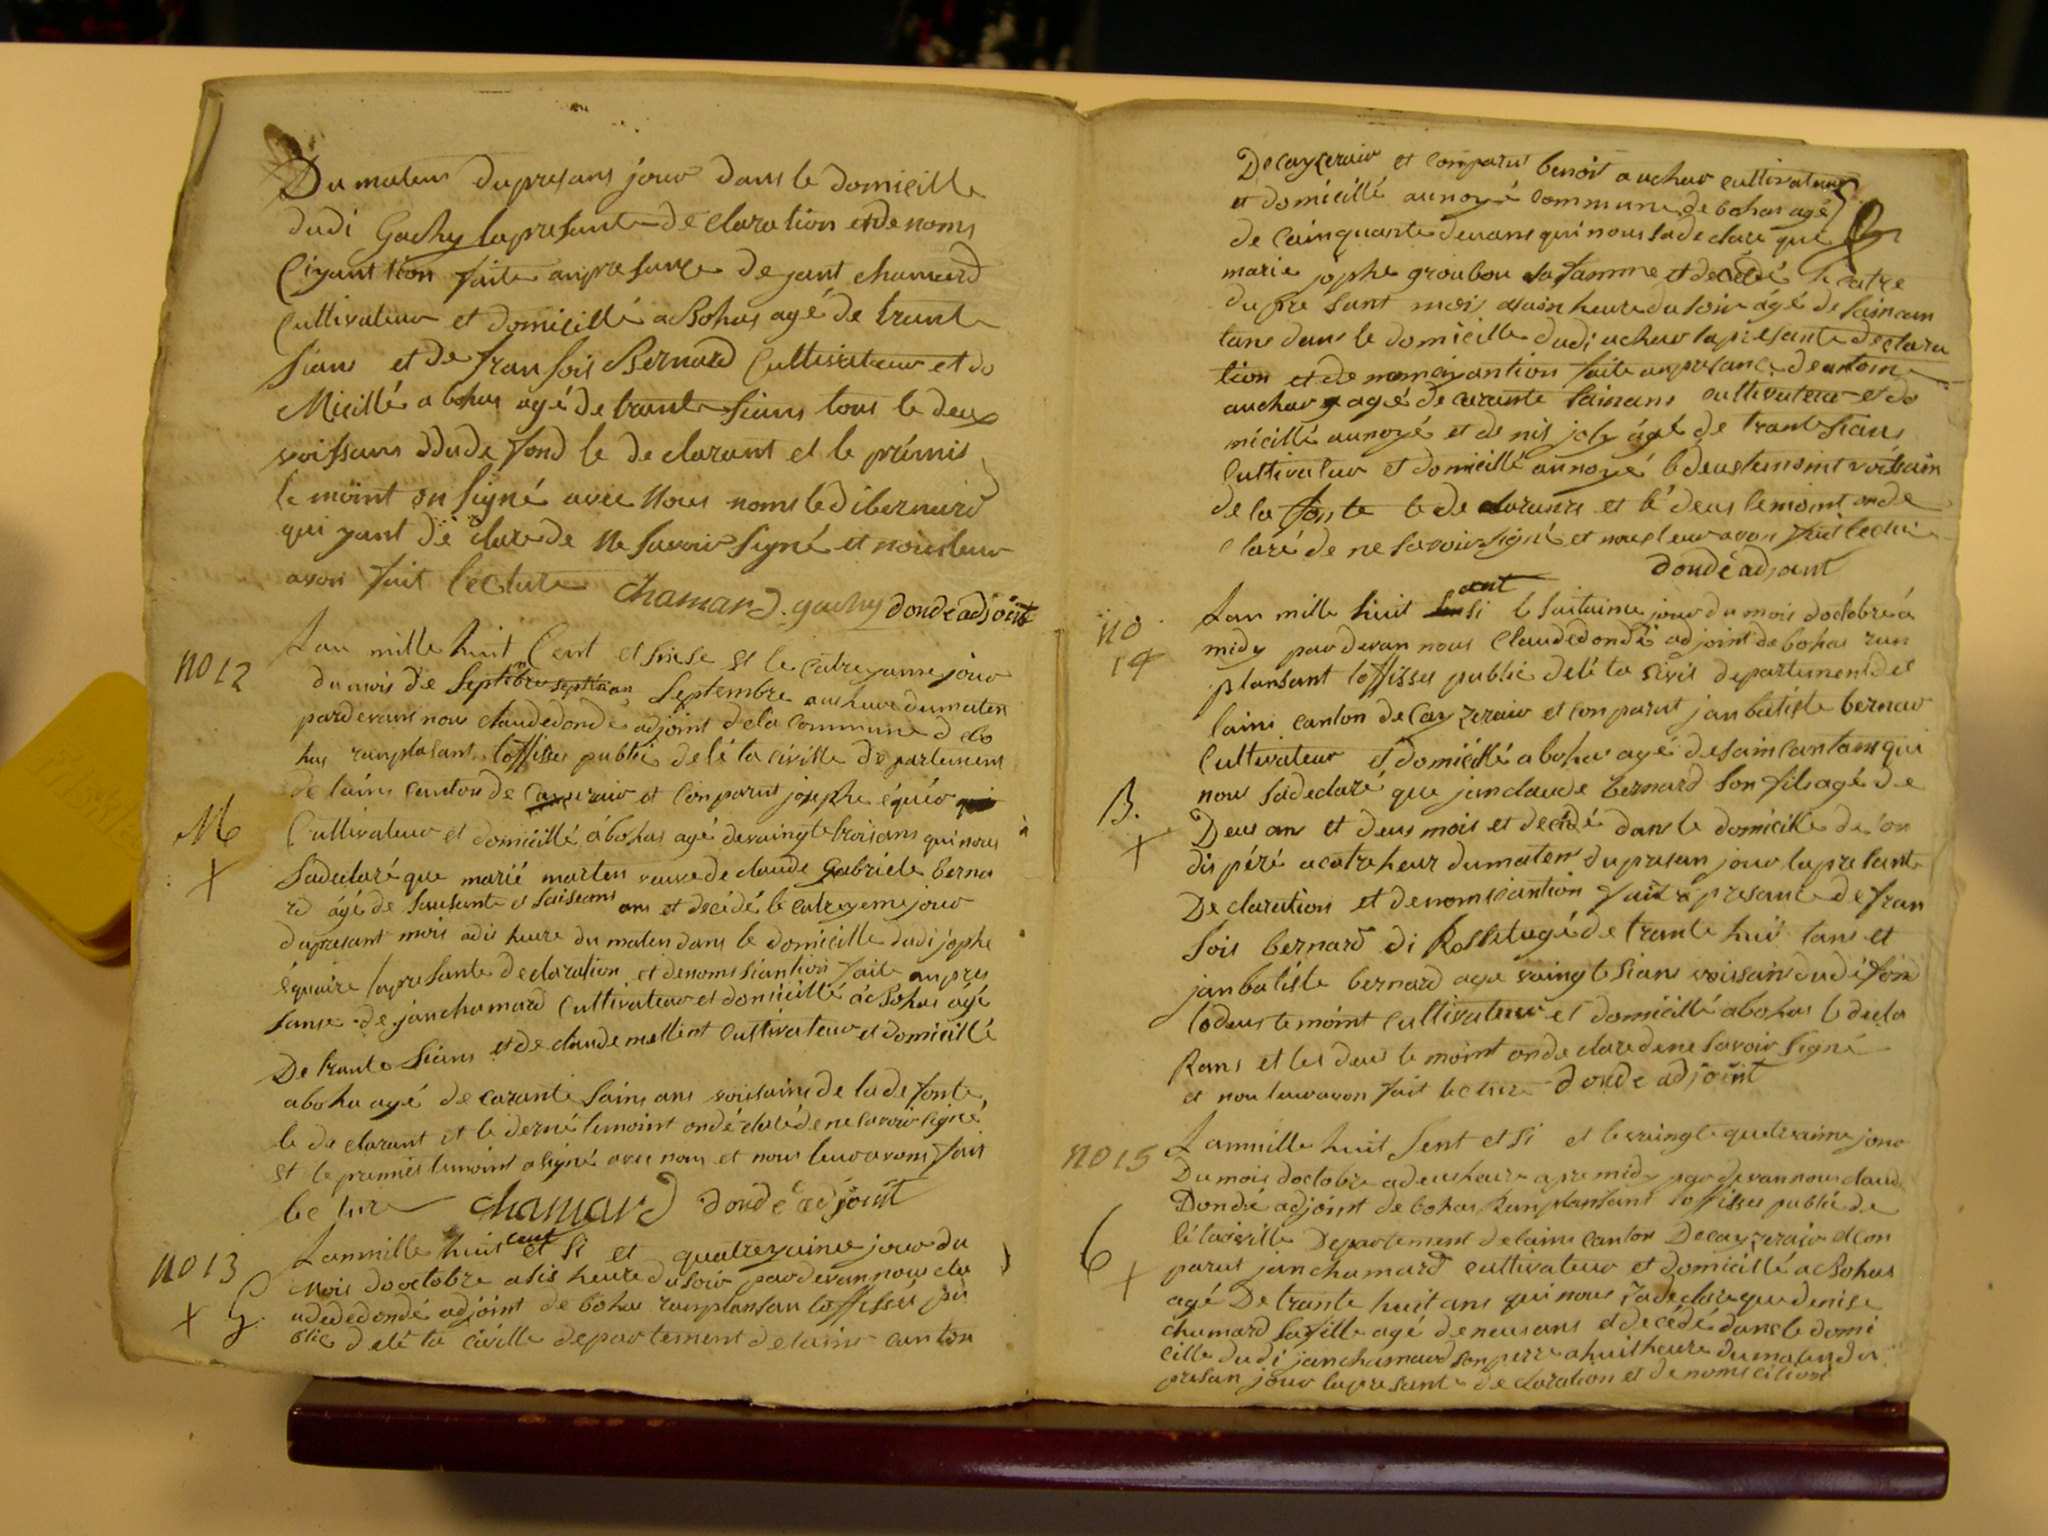 Du maten du presans jour dans le domicille
dudi Gachy la presante de claration et de noms
ciyantion faite anpresance de jant chamard
Cultivateur et domicillé a Bohas agé de trante
sians et de fransois Bernard Cultivateur et do
Micillé a bohas agé de trante sians tous le deux
voissans du de fond le de clarant et le prémis
te moint on signé avec nous noms le di bernard
qui yant dé clare de ne savoir signé et nous leur
avon fait lecture chamard gachy dondé adjoint
no 12
Lan mille huit Cent et sise et le catreyame jour
du mois de Septembre aus heure du maten
pardevans nous claude dondé adjoint de la commune de bo
has ranplasant loffisses public de lé ta civille departement
de lains canton de et conparut josephe équér
M
Cultivateur et domicillé á bohas agé de vaingte trois ans qui nous
X
sadeclaré que marié marten vauve de claude Gabriéle berna
rd ágé de sausante et saiseans ans et decédé le catreyeme jour
du presant mois a dis heure du maten dans le domicille dudi jophe
équaire la presante declaration et denoms siantion faite anpres
sanse de jan chamard Cultivateur et domicillé á Bohas agé
De trante sians et de claude mellent cultivateur et domicillé
a boha agé de carante sains ans voissains de la de fonte
le de clarant et le derné temoint on dé claré de ne savoir signé
et le premiés temoint a signé avec nous et nous leur avons fait
lecture chamard dondé adjoint
no 13
Lan mille huit cent et si et quatreyaime jour du
X G.
mois doctobre a sis heure du soir par devan nous cla
ude dondé adjoint de bohas ranplansan loffisses pu
blic de lé ta civille departement de lains canton
De cayzeraiv et conparut benoit auchar cultivateur
et domicillé au noyé commune de bohas agé
de cainquante deus ans qui nous sa de clare que
marie jophe groubou sa famme et decédé le catre
du pre sant mois a sain heure du soir ágé de sainan
tans dans le domicille dudi uchar la presante declara
tion et de nomciyantion faite anpresance de antoine
auchar agé de carante sainans cultivateur et do
micillé au noyé et de nis joly ágé de trantesians
Cultivateur et domicillé au noyé le deus temoint voissain
de la fonte le de clarans et lé deus temoint on de
claré de ne savoir signé et nous leur avon fait lectur
dondé adjoint
no
14
Lan mille huit cent si le saitaime jour du mois doctobre á
midy par devan nous Claude dondé adjoint de bohas ran
plansant loffisses public de lé ta sivis departement de
lains canton de Cayzeraiv et conparut jan batiste bernar
Cultivateur et domicillé a bohas agé de saincantans qui
nous sa declaré que jan claude bernard son fils agé de
B.
X
Deus an et deus mois et decédé dans le domicille de son
dis péré a catre heur du maten du presan jour la presante
De claration et denomsiantion fait á presance de fran
sois bernard di Rollet agé de trante hui tans et
jan batiste bernard age vaingtesians voissain dudi fon
le deus temoint cultivateur et domicillé a bohas le decla
Rans et les deus te moint on de clare de ne savoir signé
et nou leur avon fait lecture dondé adjoint
no 15
Lan mille huit sent et si et le vaingte quatreaime jour
Du mois doctobre a deus heure apre midy par devan nous claud
Dondé adjoint de bohas Ranplansant loffisses public de
lé ta siville Departement de lains canton De cayzeraiv et con
C
X
parut jan chamard cultivateur et domicillé a Bohas
agé De trante huit ans qui nous sadeclare que denise
chamard sa fille agé de neus ans et decédé dans le domi
cille du di jan chamard son perre a huit heure du maten du
presan jour la presante de claration et de nomsiation